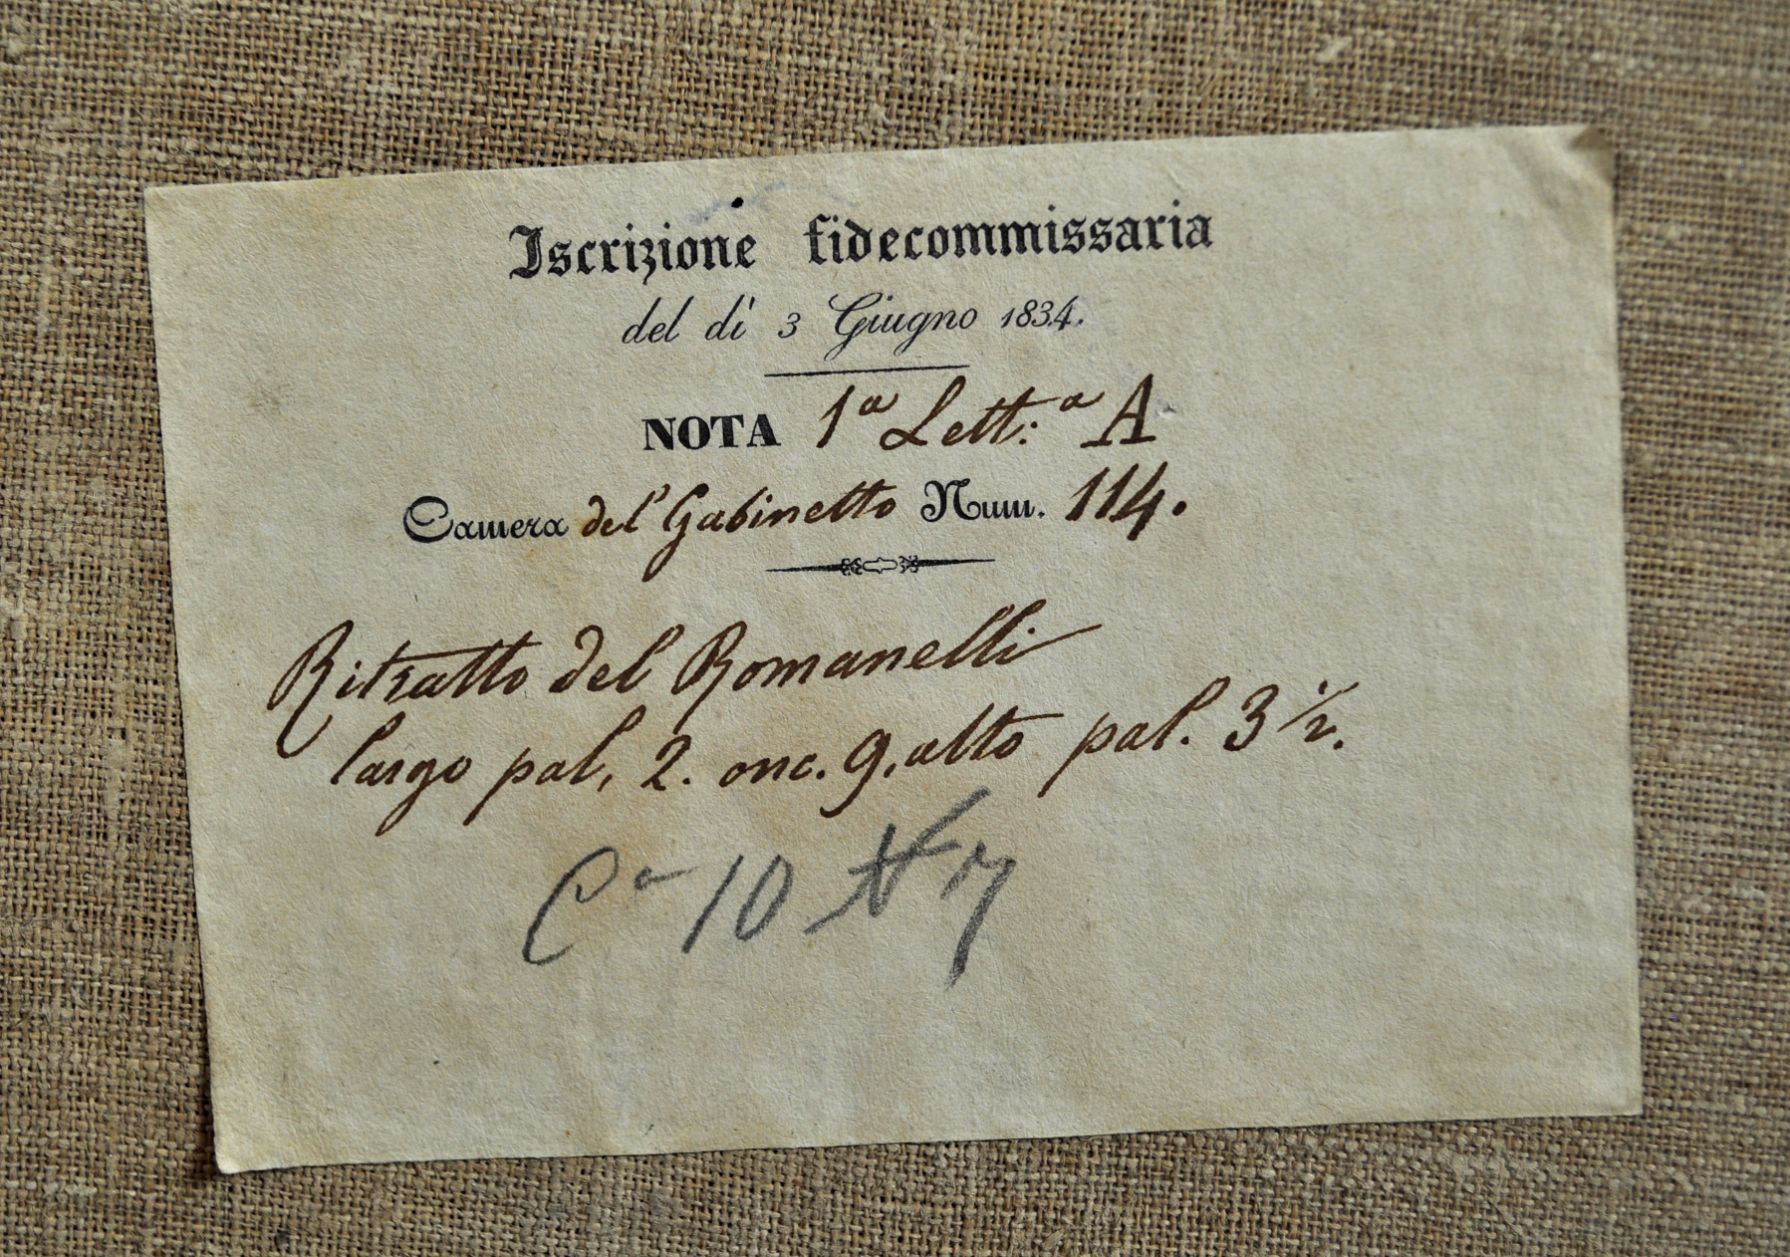 Iscrizione fidecommissaria
del dì 3 Giugno 1834.
NOTA 1a Lett:a A
Camera del' Gabinetto Num. 114.
Ritratto del Romanelli
largo pal, 2. onc. 9, alto pal. 3 1/2.
Ca 10 N 17